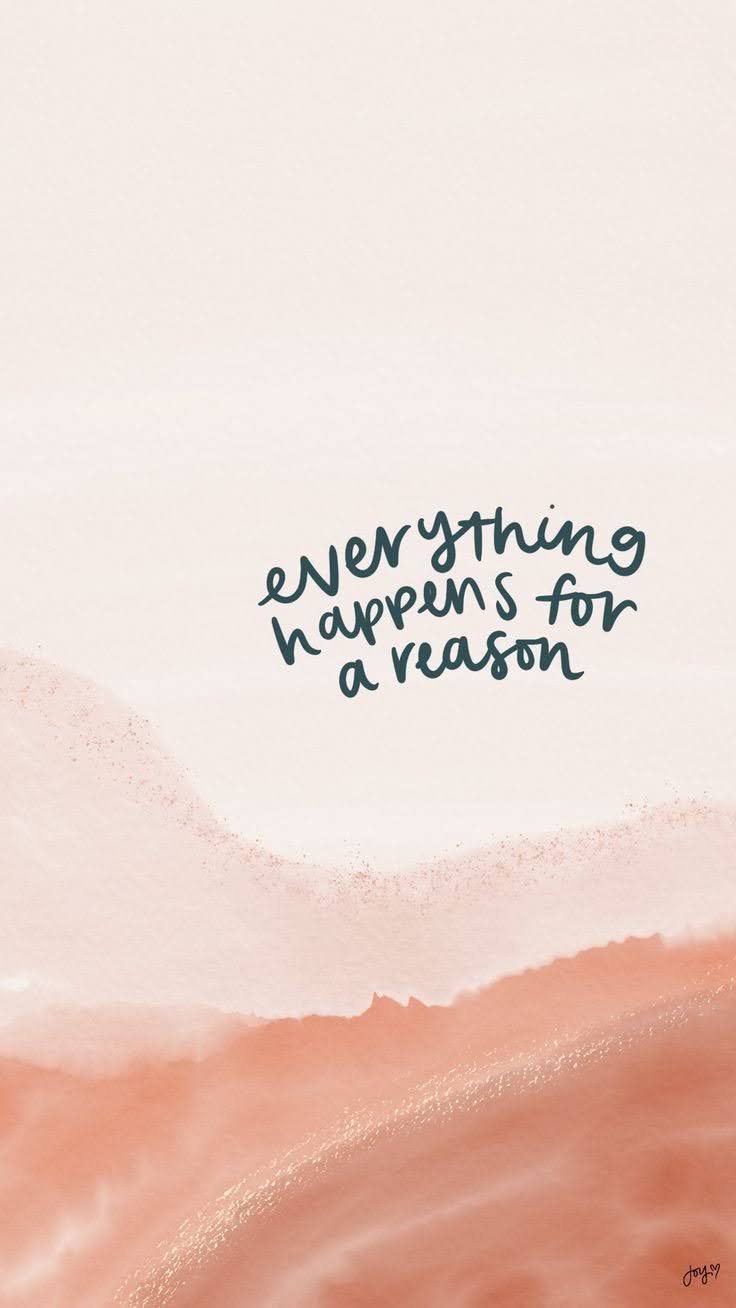 everything
happens for
a reason
Joy♡